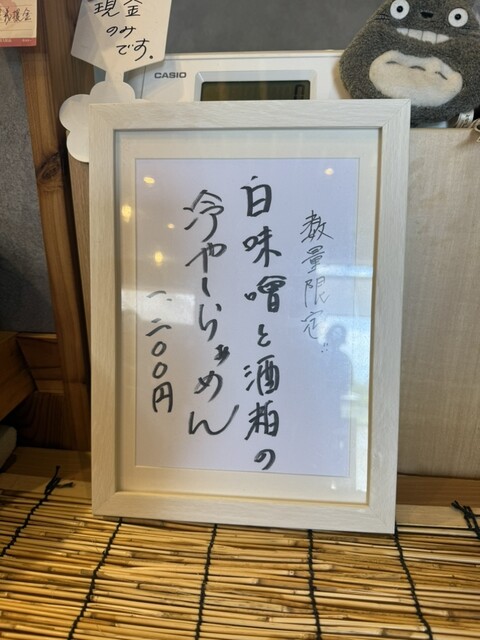 数量限定!!
白味噌と酒粕の
冷やしらぁめん
一、二〇〇円
現金
のみ
です。
CASIO
0